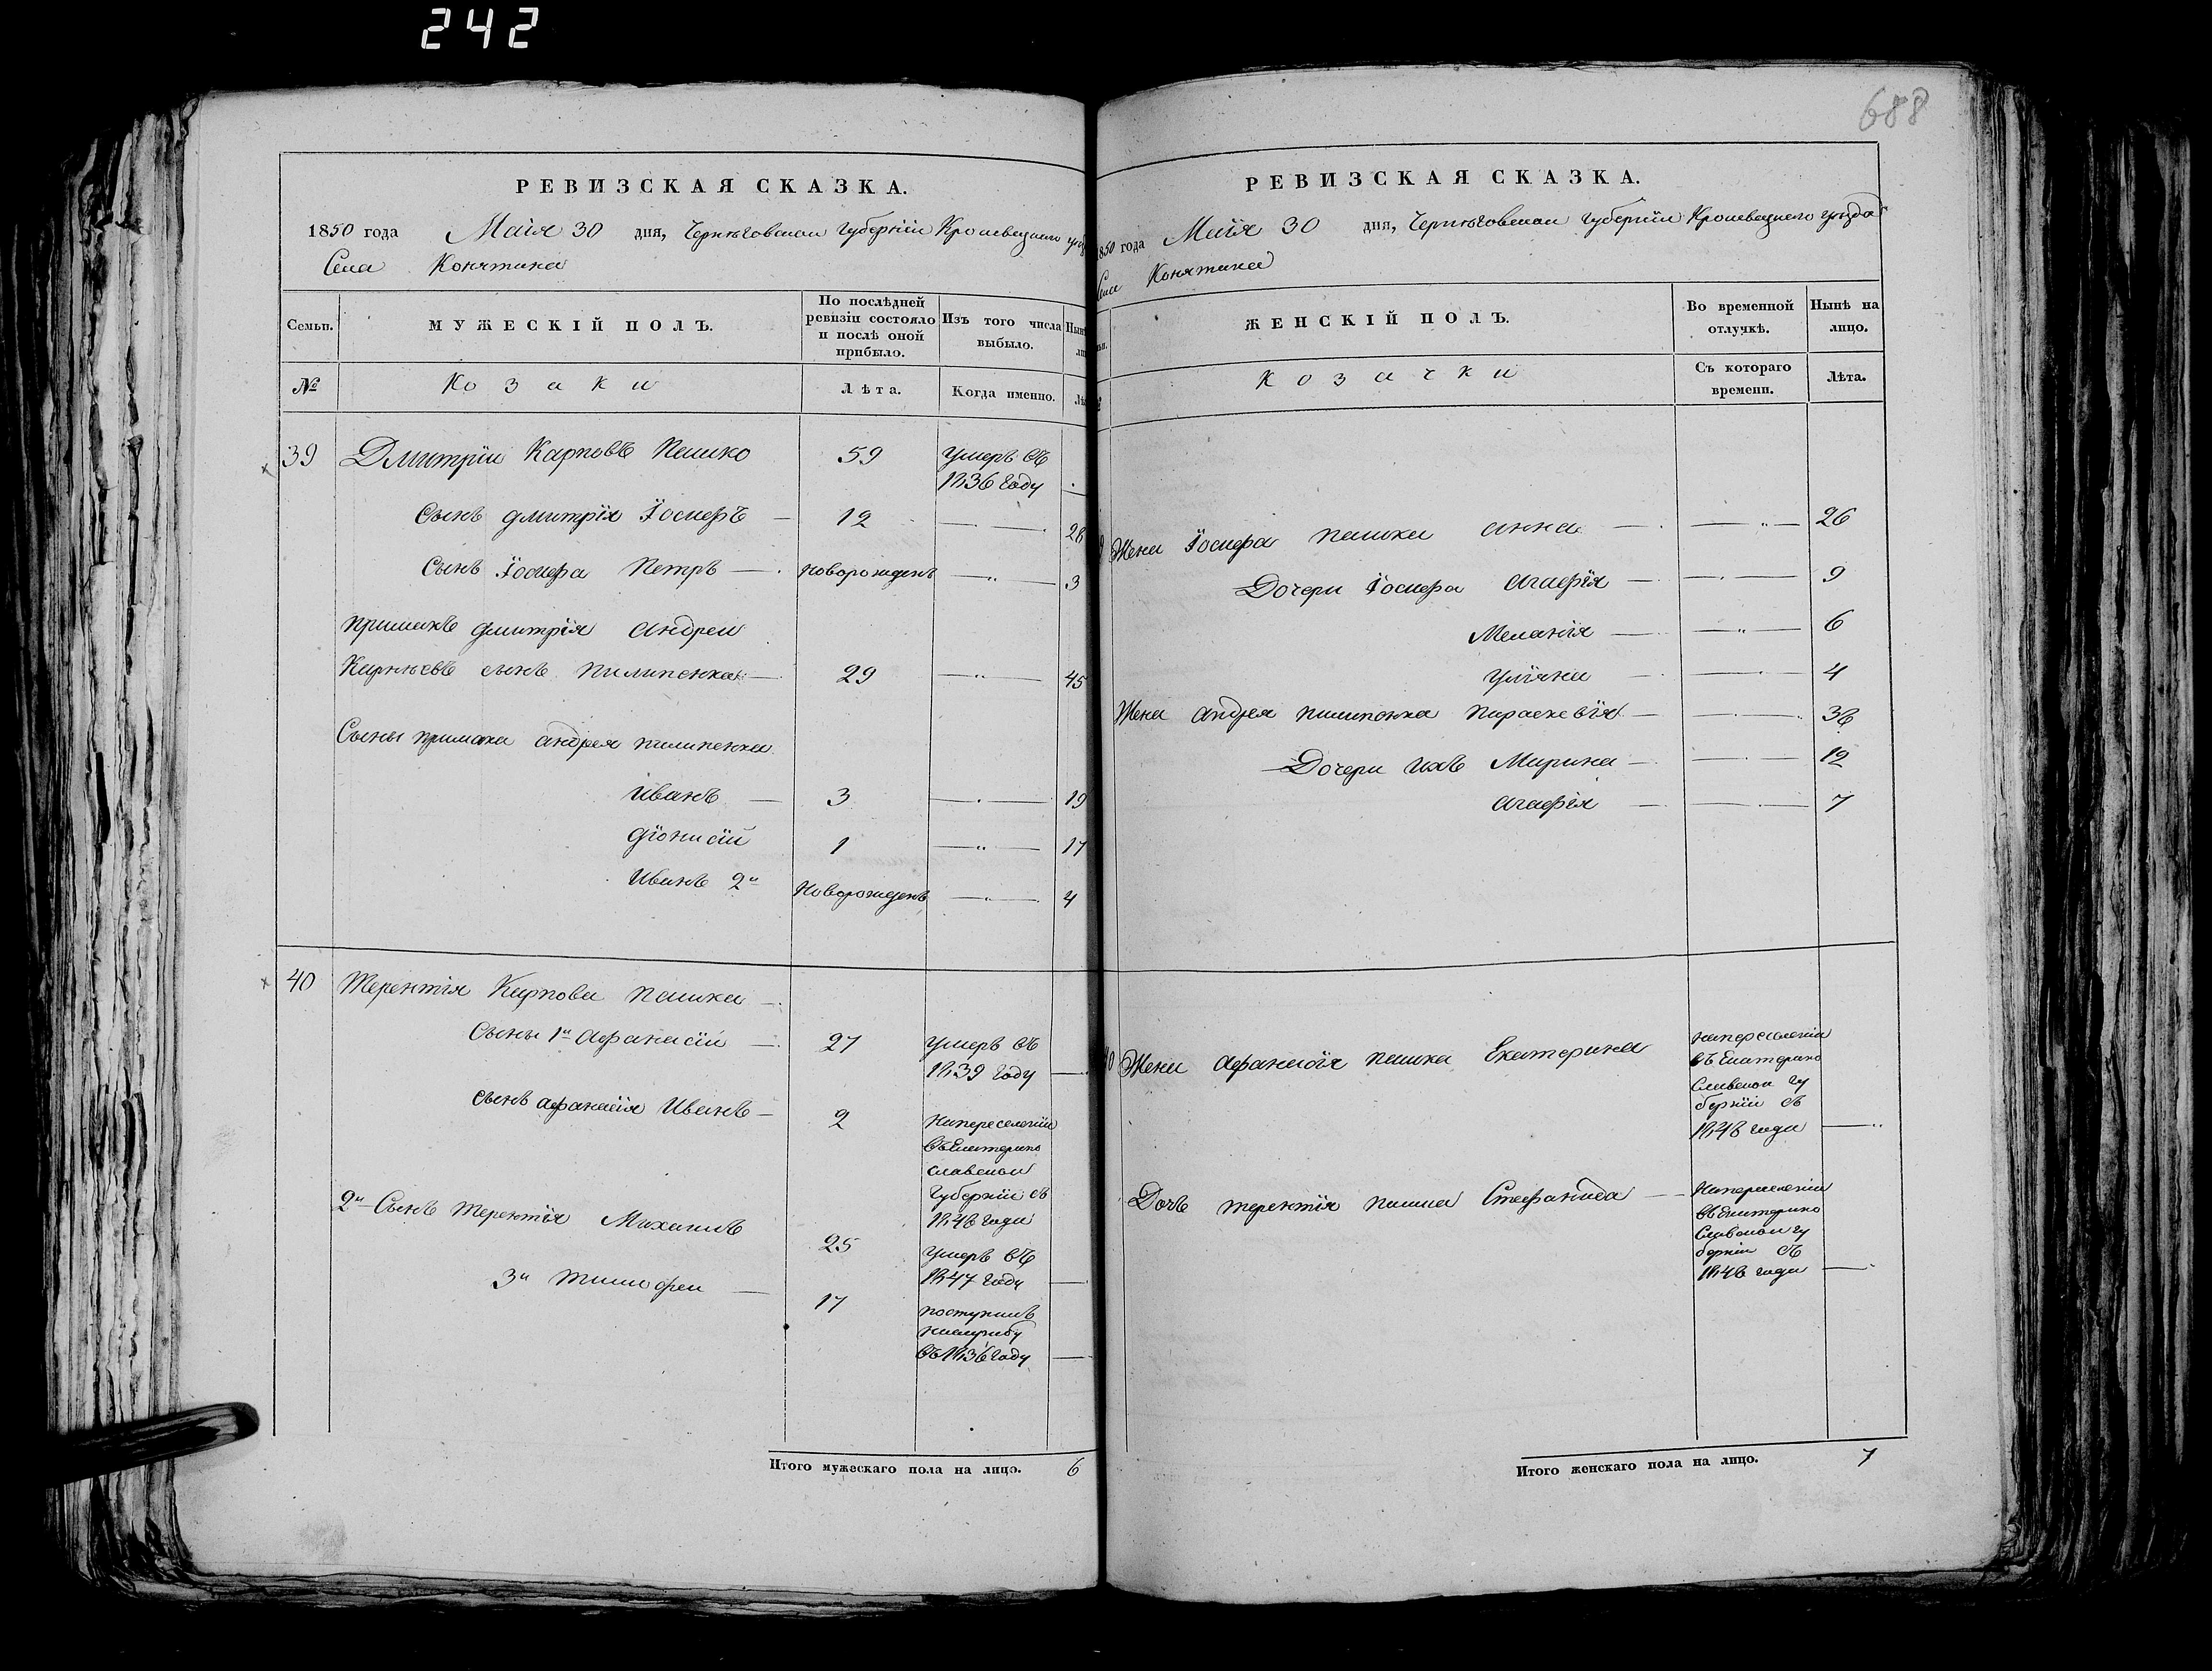 242
688
РЕВИЗСКАЯ СКАЗКА.
1850 года Маія 30 дня, Черниговской Губерніи Кролевецкаго уез
Села Конятина
Семьи.
МУЖЕСКІЙ ПОЛЪ.
По послѣдней ревизіи состояло и послѣ оной прибыло.
Изъ того числа выбыло.
№
Козаки
Лѣта.
Когда именно.
39 Дмитрій Карповъ Пашко 59 Умеръ въ
1836 Году
Сынъ Дмитрія Іосифъ 12 28
Сынъ Іосифа Петръ новорожденъ 3
Примакъ Дмитрія Андрей
Карнѣевъ сынъ Пилипенка 29 45
Сыны примака Андрея Пилипенка
Иванъ 3 19
Діонисій 1 17
Иванъ 2й Новорожденъ 4
40 Терентія Карпова Пашка
Сыны 1й Афанасій 27 Умеръ въ
1839 Году
Сынъ Афанасія Иванъ 2 На переселеніи
въ Екатерино
славской
Губерніи съ
1848 года
2й Сынъ Терентія Михаилъ 25 Умеръ въ
1847 году
3й Тимофей 17 поступилъ
въ 1836 Году
Итого мужескаго пола на лицо. 6
РЕВИЗСКАЯ СКАЗКА.
1850 года Маія 30 дня, Черниговской Губерніи Кролевецкаго уезда
Села Конятина
ЖЕНСКІЙ ПОЛЪ.
Во временной отлучкѣ.
Нынѣ на лицо.
Козачки
Съ котораго времени.
Лѣта.
Жена Іосифа Пашка Анна 26
Дочери Іосифа Агафія 9
Меланія 6
Уліяна 4
Жена Андрея Пилипенка Параскевія 38
Дочери ихъ Марина 12
Агафія 7
40 Жена Афанасія Пашка Екатерина на переселеніи
въ Екатерино
Славской Гу
берніи съ
1848 года
Дочь Терентія Пашка Стефанида На переселеніи
въ Екатерино
Славской гу
берніи съ
1848 года
Итого женскаго пола на лицо. 7